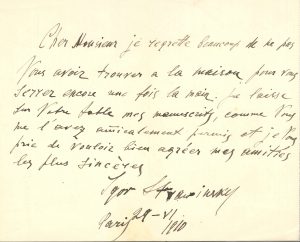 Cher Monsieur je regrette beaucoup de ne pas
Vous avoir trouver a la maison pour vous
serrer encore une fois la main. Je laisse
sur Votre table mes manuscrits, comme Vous
me l'avez amicalement permis et je Vous
prie de vouloir bien agréer mes amitiés
les plus sincères
Igor Strawinsky
Paris 29–VI
1910